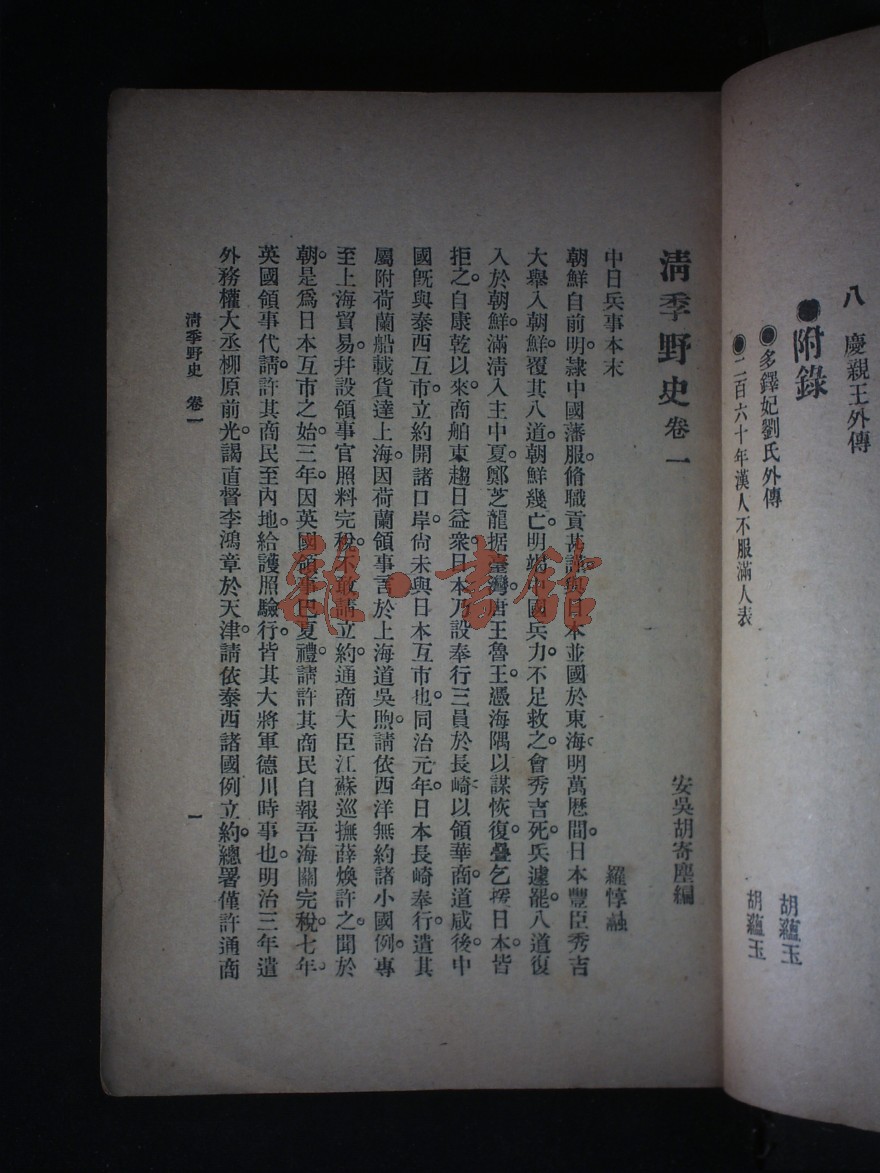 八　慶親王外傳
●附錄
●多鐸妃劉氏外傳　胡蘊玉
●二百六十年漢人不服滿人表　胡蘊玉
清季野史　卷一
安吳胡寄塵編
中日兵事本末　羅惇融
朝鮮自前明隷中國藩服。脩職貢甚謹。與日本並國於東海。明萬歷間。日本豐臣秀吉
大舉入朝鮮。覆其八道。朝鮮幾亡。明竭中國兵力。不足救之。會秀吉死。兵遽罷。八道復
入於朝鮮。滿淸入主中夏。鄭芝龍据臺灣。唐王魯王。憑海隅以謀恢復。疊乞援日本。皆
拒之。自康乾以來。商舶東趨日益衆。日本乃設奉行三員於長崎。以領華商。道咸後中
國旣與泰西互市。立約開諸口岸。尙未與日本互市也。同治元年。日本長崎奉行。遣其
屬附荷蘭船載貨達上海。因荷蘭領事言於上海道吳煦。請依西洋無約諸小國例。專
至上海貿易。幷設領事官照料完稅。不敢請立約。通商大臣江蘇巡撫薛煥許之。聞於
朝。是爲日本互市之始。三年。因英國領事巴夏禮。請許其商民自報吾海關完稅。七年。
英國領事代請。許其商民至內地。給護照驗行。皆其大將軍德川時事也。明治三年。遣
外務權大丞柳原前光。謁直督李鴻章於天津。請依泰西諸國例立約。總署僅許通商
清季野史　卷一
一
雜·書館